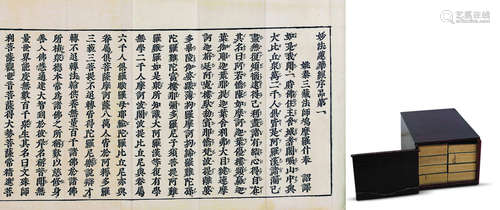 妙法蓮華經序品第一
姚秦三藏法師鳩摩羅什奉 詔譯
如是我聞一時佛住王舍城耆闍崛山中與
大比丘衆萬二千人俱皆是阿羅漢諸漏已
盡無復煩惱逮得己利盡諸有結心得自在
其名曰阿若憍陳如摩訶迦葉優樓頻螺迦
葉伽耶迦葉那提迦葉舍利弗大目犍連摩
訶迦旃延阿㝹樓馱劫賓那憍梵波提離婆
多畢陵伽婆蹉薄拘羅摩訶拘絺羅難陀孫
陀羅難陀富樓那彌多羅尼子須菩提阿難
羅睺羅如是衆所知識大阿羅漢等復有學
無學二千人摩訶波闍波提比丘尼與眷屬
六千人俱羅睺羅母耶輸陀羅比丘尼亦與
眷屬俱菩薩摩訶薩八萬人皆於阿耨多羅
三藐三菩提不退轉皆得陀羅尼樂說辯才
轉不退轉法輪供養無量百千諸佛於諸佛
所植衆德本常爲諸佛之所稱歎以慈修身
善入佛慧通達大智到於彼岸名稱普聞無
量世界能度無數百千衆生其名曰文殊師
利菩薩觀世音菩薩得大勢菩薩常精進菩